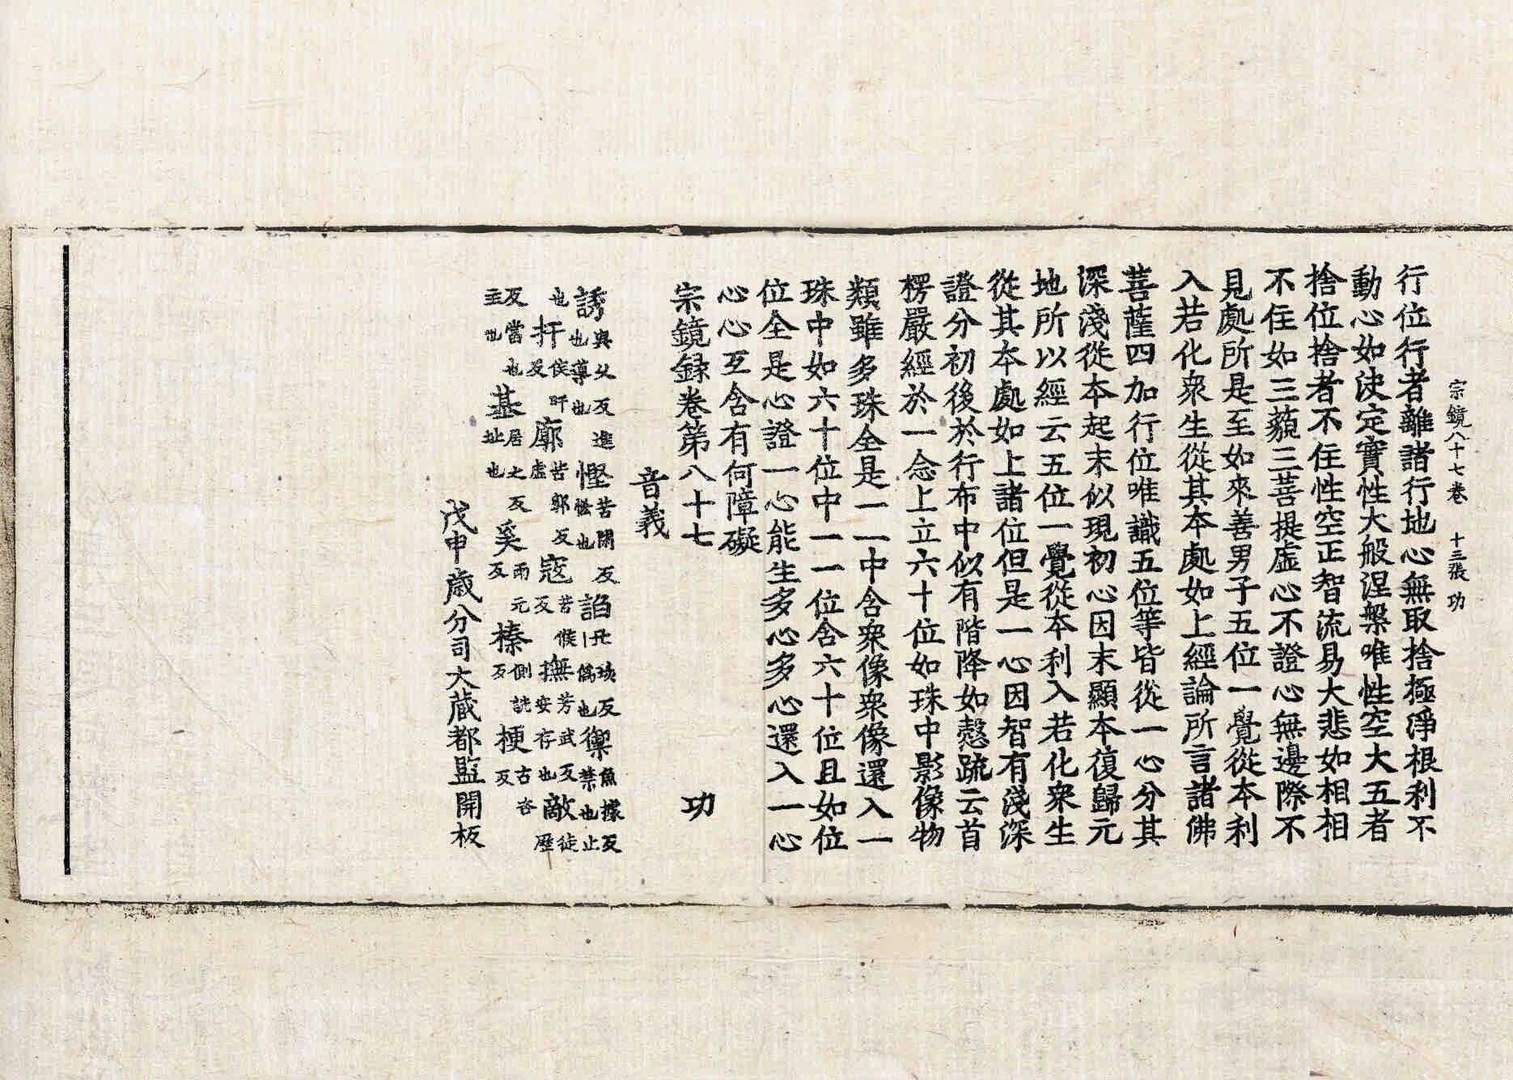 宗鏡八十七卷　十三張　功
行位行者離諸行地心無取捨極淨根利不
動心如決定實性大般涅槃唯性空大五者
捨位捨者不住性空正智流易大悲如相相
不住如三藐三菩提虛心不證心無邊際不
見處所是至如來善男子五位一覺從本利
入若化衆生從其本處如上經論所言諸佛
菩薩四加行位唯識五位等皆從一心分其
深淺從本起末似現初心因末顯本復歸元
地所以經云五位一覺從本利入若化衆生
從其本處如上諸位但是一心因智有淺深
證分初後於行布中似有階降如慤疏云首
楞嚴經於一念上立六十位如珠中影像物
類雖多珠全是一一中含衆像衆像還入一
珠中如六十位中一一位含六十位且如位
位全是心證一心能生多心多心還入一心
心心互含有何障礙
宗鏡録卷第八十七　功
音義
誘與久反進也導也 慳苦閑反悋也 諂丑琰反僞也 禦魚據反禁也止
也 扞侯旰反 廓苦郭反虛 寇苦候反 撫芳武反安存也 敵徒歷
反當也主也 基居之反址也 奚雨元反 榛側詵反 梗古杏反
戊申歲分司大藏都監開板